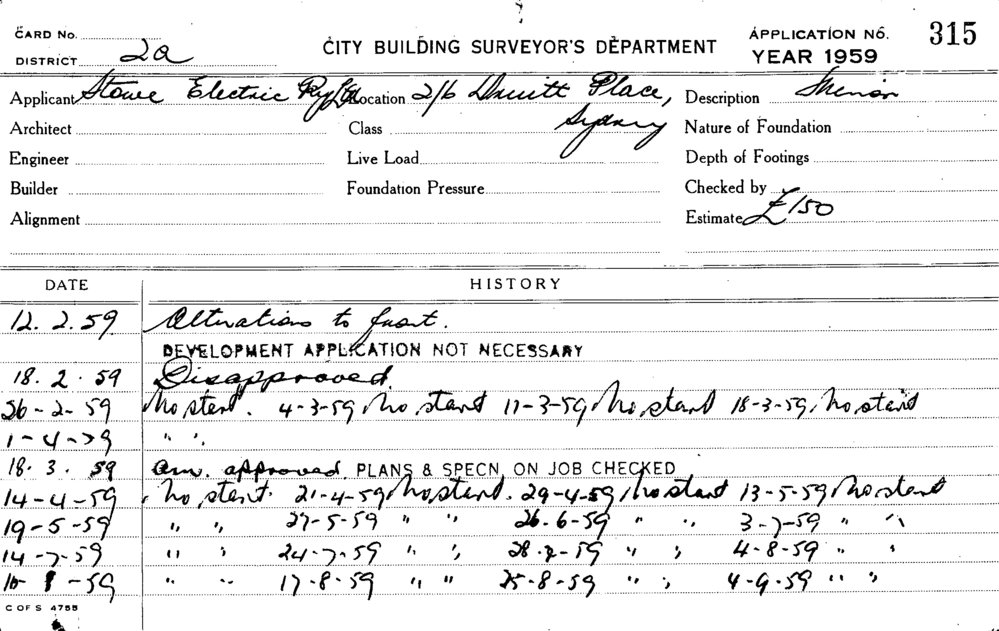 CARD No. APPLICATION No. 315
DISTRICT 2a CITY BUILDING SURVEYOR'S DEPARTMENT YEAR 1959
Applicant Stowe Electric Pty Ltd Location 2/6 Druitt Place, Description Minor
Architect Class Sydney Nature of Foundation
Engineer Live Load Depth of Footings
Builder Foundation Pressure Checked by
Alignment Estimate £150
DATE HISTORY
12.2.59 Alterations to front.
DEVELOPMENT APPLICATION NOT NECESSARY
18.2.59 Disapproved.
26-2-59 No start. 4-3-59, No start 11-3-59, No start 18-3-59, No start
1-4-59 " "
18.3.59 am. approved. PLANS & SPECN. ON JOB CHECKED
14-4-59 No start. 21-4-59, No start. 29-4-59, No start 13-5-59, No start
19-5-59 " " 27-5-59 " " 26.6-59 " " 3-7-59 " "
14-7-59 " " 24-7-59 " " 28-7-59 " " 4-8-59 " "
" " 17-8-59 " " 25-8-59 " " 4-9-59 " "
C OF S 4755